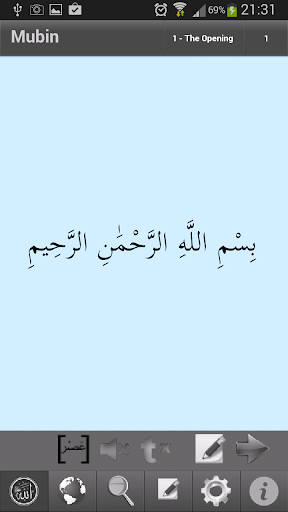 21:31
Mubin
1 - The Opening
1
بِسْمِ اللَّهِ الرَّحْمَٰنِ الرَّحِيمِ
عَصْر
الله